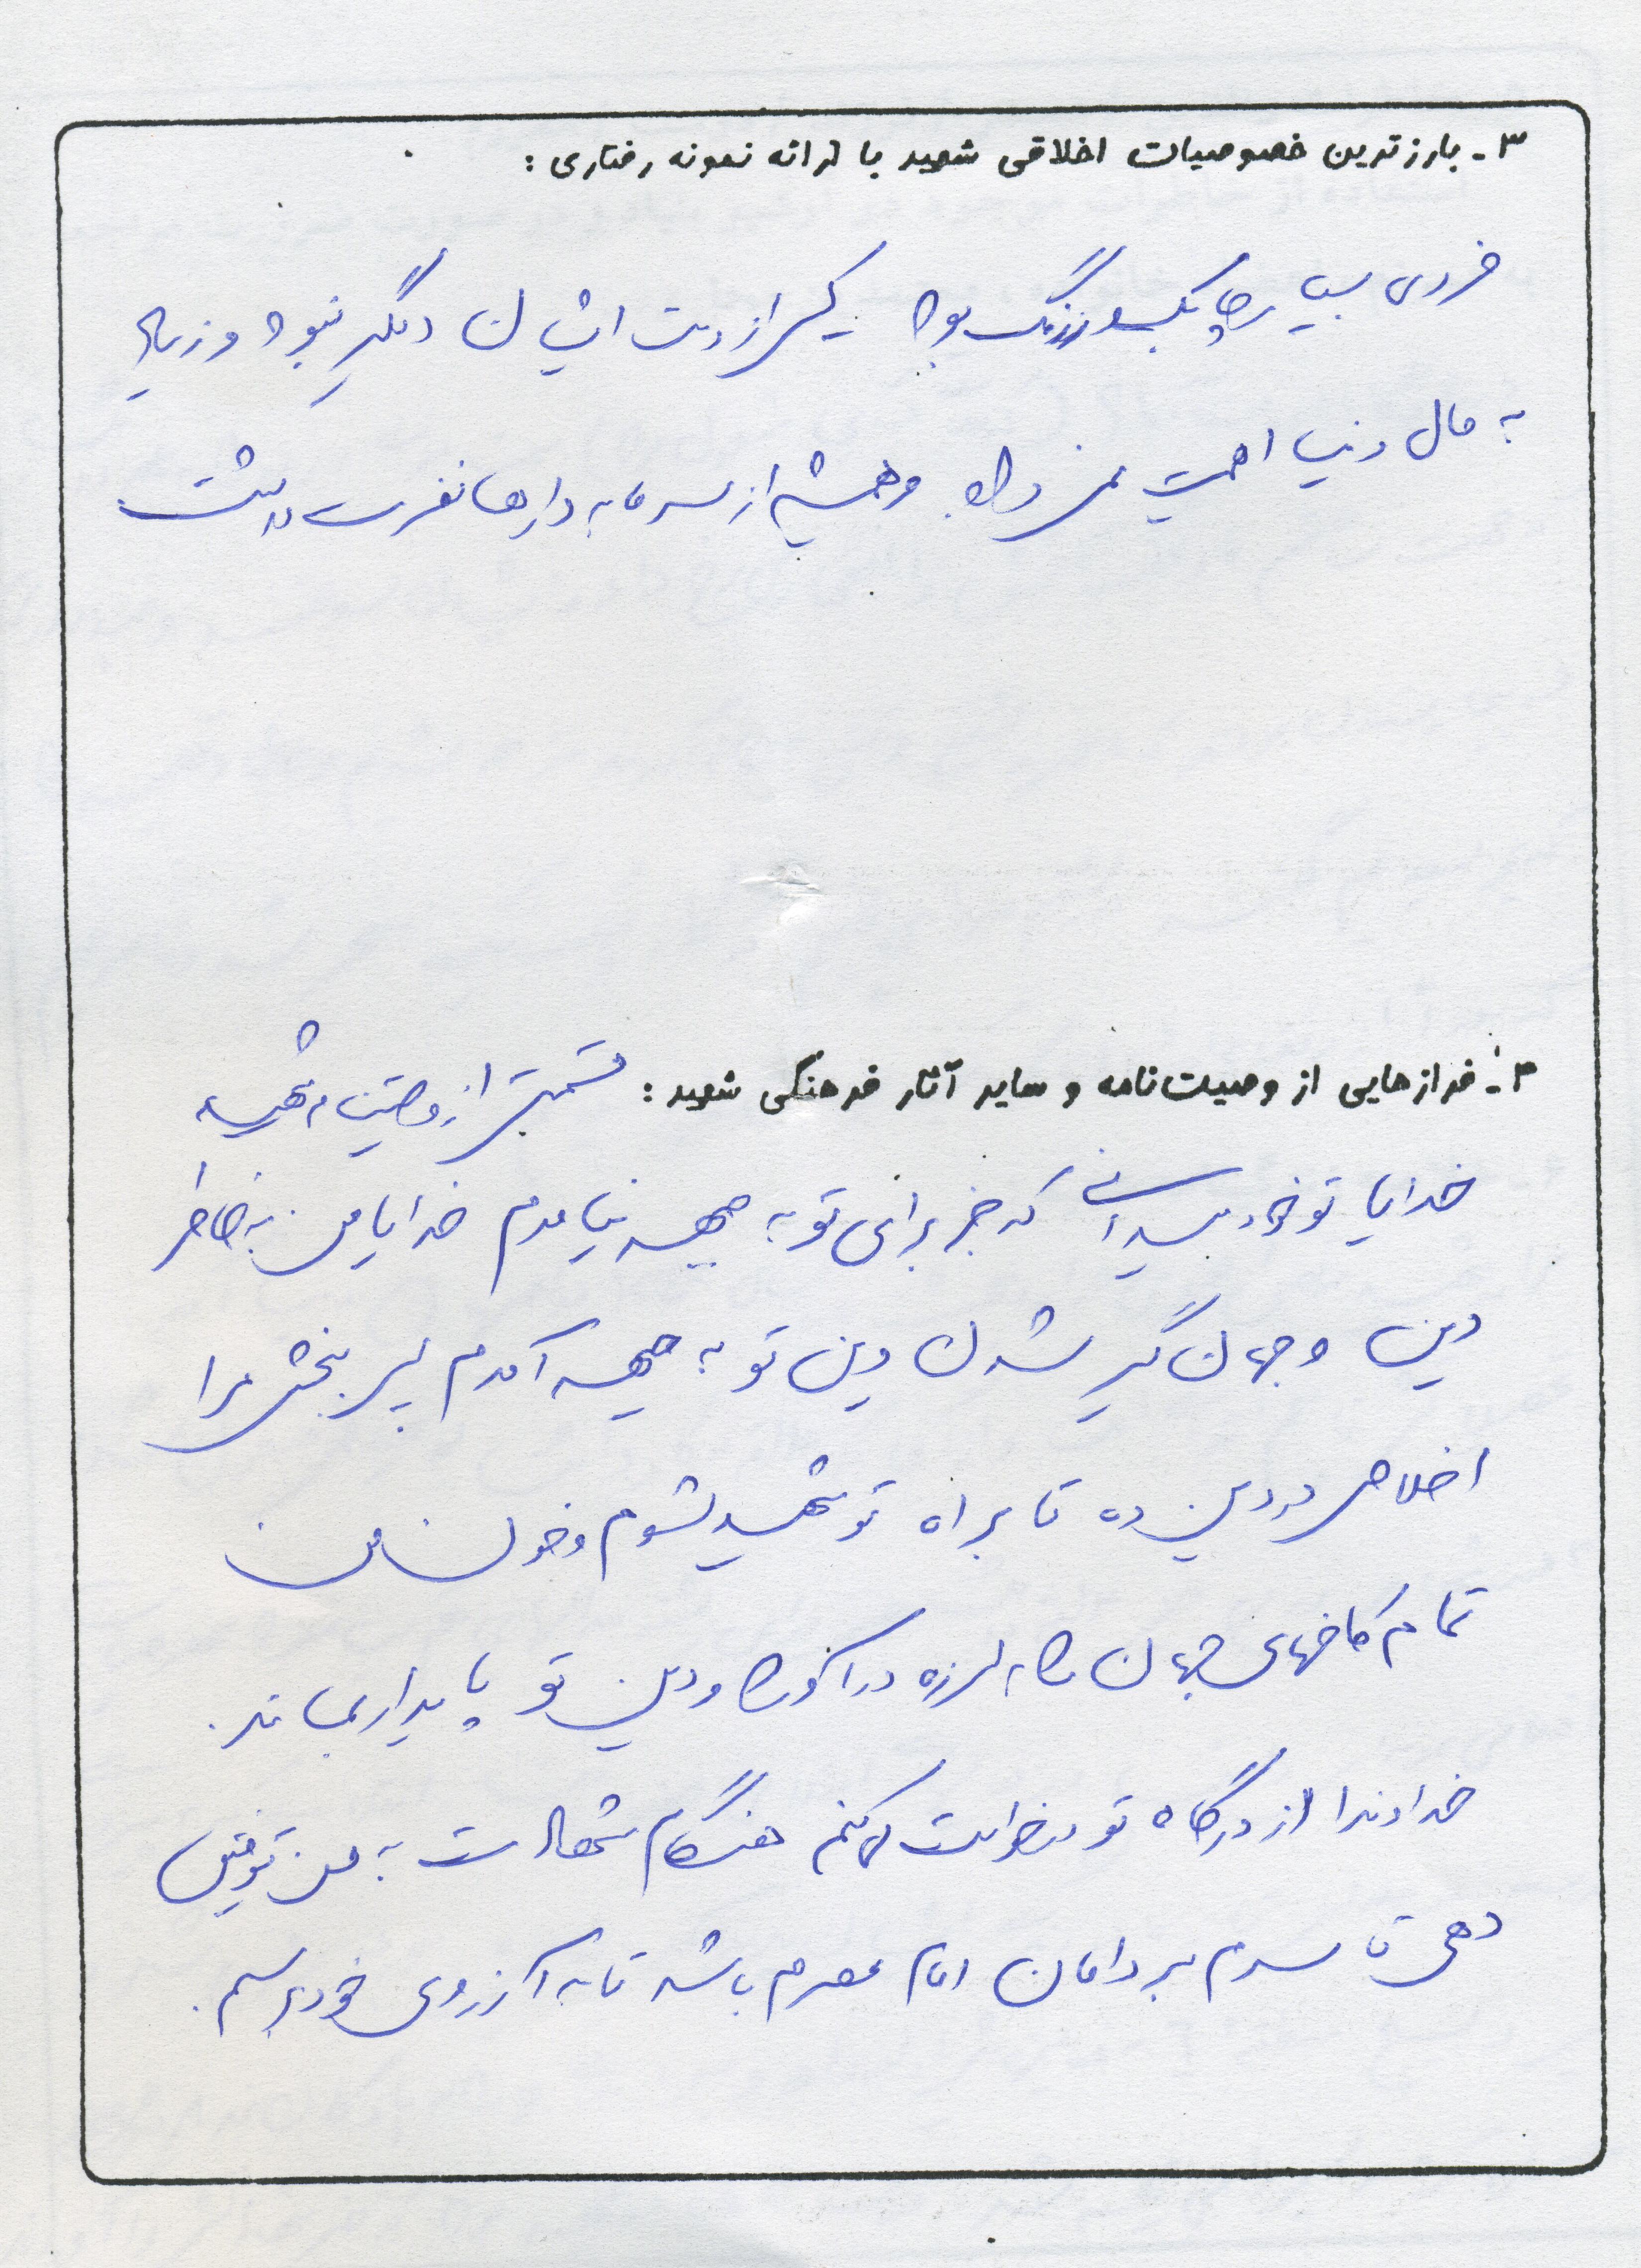 ۳- بارزترین خصوصیات اخلاقی شهید با ارائه نمونه رفتاری :
فردی بسیار چابک و زرنگ بود کسی از دست ایشان دلگیر نبود و زیاد
به مال دنیا اهمیت نمی داد و همیشه از سرمایه دارها نفرت داشت
۴- فرازهایی از وصیت نامه و سایر آثار فرهنگی شهید : قسمتی از وصیتنامه شهید
خدایا تو خود میدانی که جز برای تو به جبهه نیامدم خدایا من به خاطر
دین و جهان گیر شدن دین تو به جبهه آمدم پس ببخش مرا
اخلاص در دین ده تا براه تو شهید بشوم و خون من
تمام کاخهای جهان را به لرزه در آورد و دین تو پایدار بماند .
خداوندا از درگاه تو درخواست میکنم هنگام شهادت به من توفیق
دهی تا سرم بر دامان امام عصرم باشد تا به آرزوی خود برسم .